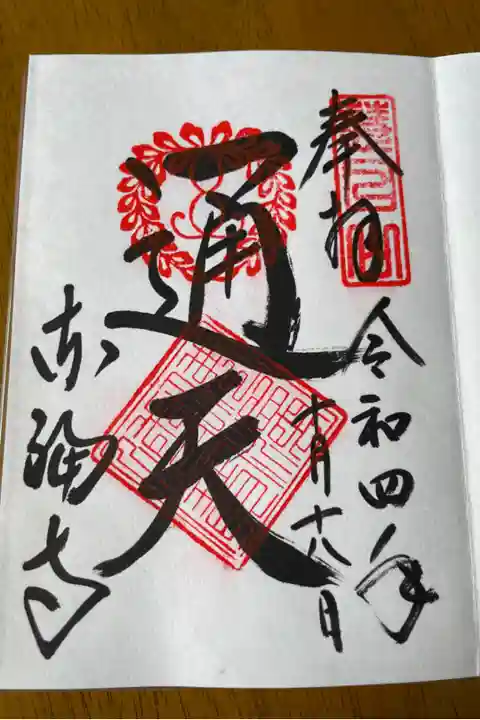 奉拝
令和四年
十月十八日
通天
東福寺